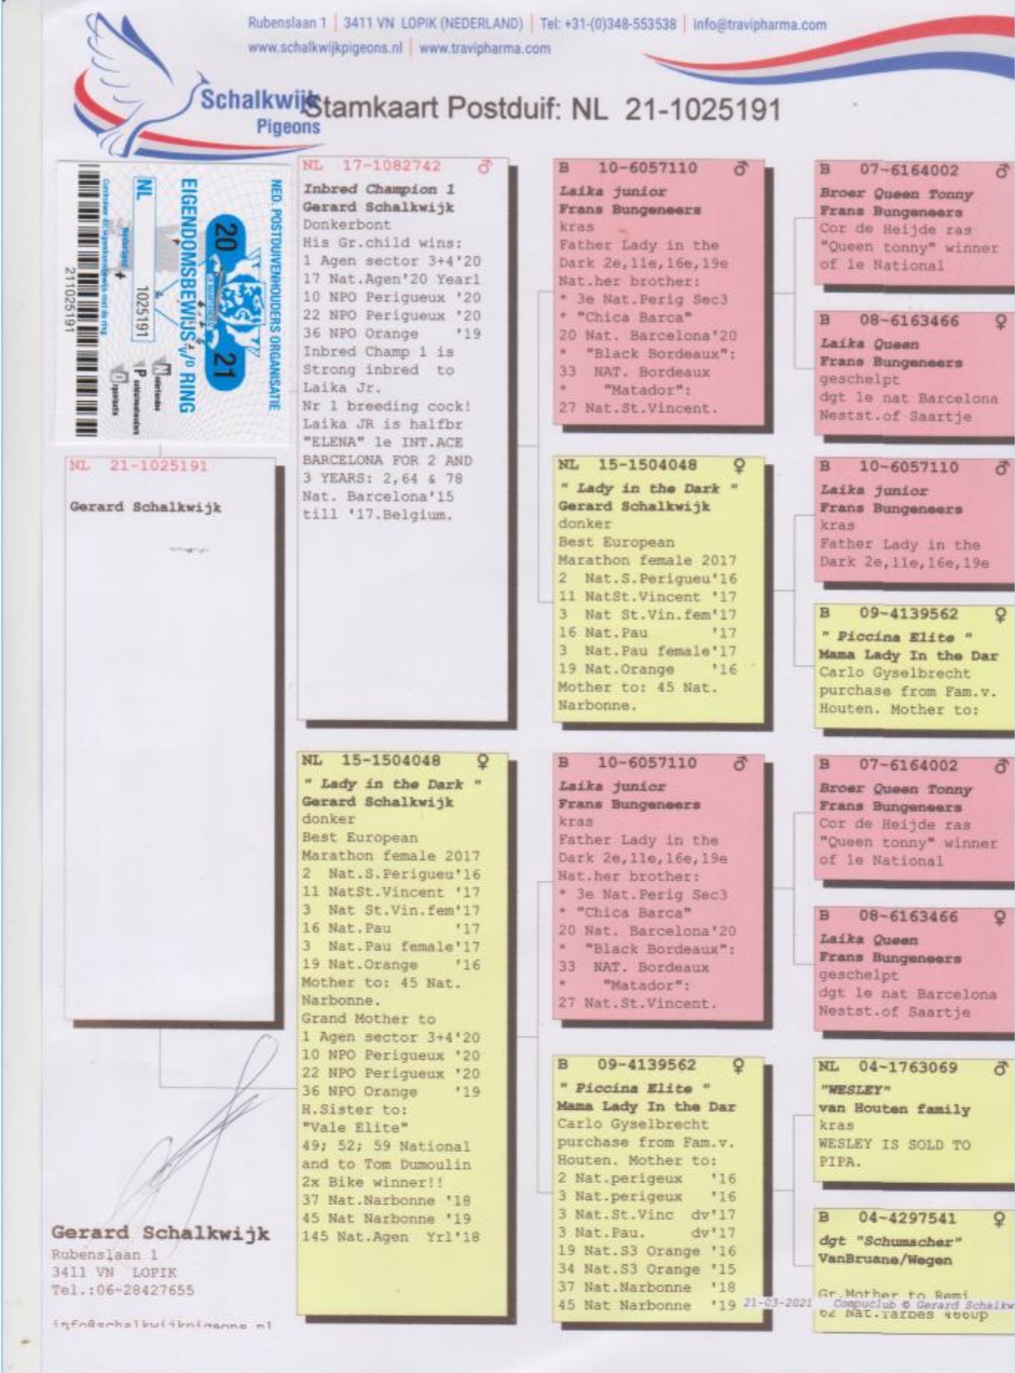 Rubenslaan 1 | 3411 VN LOPIK (NEDERLAND) | Tel: +31-(0)348-553538 | info@travipharma.com
www.schalkwijkpigeons.nl | www.travipharma.com
Schalkwijk
Pigeons
Stamkaart Postduif: NL 21-1025191
NED. POSTDUIVENHOUDERS ORGANISATIE
20
21
EIGENDOMSBEWIJS v/d RING
NL
1025191
Nederland
Nederlandse
Postduivenhouders
Organisatie
211025191
NL 21-1025191
Gerard Schalkwijk
NL 17-1082742 ♂
Inbred Champion 1
Gerard Schalkwijk
Donkerbont
His Gr.child wins:
1 Agen sector 3+4'20
17 Nat.Agen'20 Yearl
10 NPO Perigueux '20
22 NPO Perigueux '20
36 NPO Orange '19
Inbred Champ 1 is
Strong inbred to
Laika Jr.
Nr 1 breeding cock!
Laika JR is halfbr
"ELENA" 1e INT.ACE
BARCELONA FOR 2 AND
3 YEARS: 2,64 & 78
Nat. Barcelona'15
till '17.Belgium.
NL 15-1504048 ♀
" Lady in the Dark "
Gerard Schalkwijk
donker
Best European
Marathon female 2017
2 Nat.S.Perigueu'16
11 NatSt.Vincent '17
3 Nat St.Vin.fem'17
16 Nat.Pau '17
3 Nat.Pau female'17
19 Nat.Orange '16
Mother to: 45 Nat.
Narbonne.
Grand Mother to
1 Agen sector 3+4'20
10 NPO Perigueux '20
22 NPO Perigueux '20
36 NPO Orange '19
H.Sister to:
"Vale Elite"
49; 52; 59 National
and to Tom Dumoulin
2x Bike winner!!
37 Nat.Narbonne '18
45 Nat Narbonne '19
145 Nat.Agen Yrl'18
B 10-6057110 ♂
Laika junior
Frans Bungeneers
kras
Father Lady in the
Dark 2e,11e,16e,19e
Nat.her brother:
* 3e Nat.Perig Sec3
* "Chica Barca"
20 Nat. Barcelona'20
* "Black Bordeaux":
33 NAT. Bordeaux
* "Matador":
27 Nat.St.Vincent.
NL 15-1504048 ♀
" Lady in the Dark "
Gerard Schalkwijk
donker
Best European
Marathon female 2017
2 Nat.S.Perigueu'16
11 NatSt.Vincent '17
3 Nat St.Vin.fem'17
16 Nat.Pau '17
3 Nat.Pau female'17
19 Nat.Orange '16
Mother to: 45 Nat.
Narbonne.
B 10-6057110 ♂
Laika junior
Frans Bungeneers
kras
Father Lady in the
Dark 2e,11e,16e,19e
Nat.her brother:
* 3e Nat.Perig Sec3
* "Chica Barca"
20 Nat. Barcelona'20
* "Black Bordeaux":
33 NAT. Bordeaux
* "Matador":
27 Nat.St.Vincent.
B 09-4139562 ♀
" Piccina Elite "
Mama Lady In the Dar
Carlo Gyselbrecht
purchase from Fam.v.
Houten. Mother to:
2 Nat.perigeux '16
3 Nat.perigeux '16
3 Nat.St.Vinc dv'17
3 Nat.Pau. dv'17
19 Nat.S3 Orange '16
34 Nat.S3 Orange '15
37 Nat.Narbonne '18
45 Nat Narbonne '19
B 07-6164002 ♂
Broer Queen Tonny
Frans Bungeneers
Cor de Heijde ras
"Queen tonny" winner
of 1e National
B 08-6163466 ♀
Laika Queen
Frans Bungeneers
geschelpt
dgt 1e nat Barcelona
Nestst.of Saartje
B 10-6057110 ♂
Laika junior
Frans Bungeneers
kras
Father Lady in the
Dark 2e,11e,16e,19e
B 09-4139562 ♀
" Piccina Elite "
Mama Lady In the Dar
Carlo Gyselbrecht
purchase from Fam.v.
Houten. Mother to:
B 07-6164002 ♂
Broer Queen Tonny
Frans Bungeneers
Cor de Heijde ras
"Queen tonny" winner
of 1e National
B 08-6163466 ♀
Laika Queen
Frans Bungeneers
geschelpt
dgt 1e nat Barcelona
Nestst.of Saartje
NL 04-1763069 ♂
"WESLEY"
van Houten family
kras
WESLEY IS SOLD TO
PIPA.
B 04-4297541 ♀
dgt "Schumacher"
VanBruane/Wegen
Gr.Mother to Remi
62 Nat.Tarbes 4660p
Gerard Schalkwijk
Rubenslaan 1
3411 VN LOPIK
Tel.:06-28427655
info@schalkwijkpigeons.nl
21-03-2021 Compuclub © Gerard Schalkw